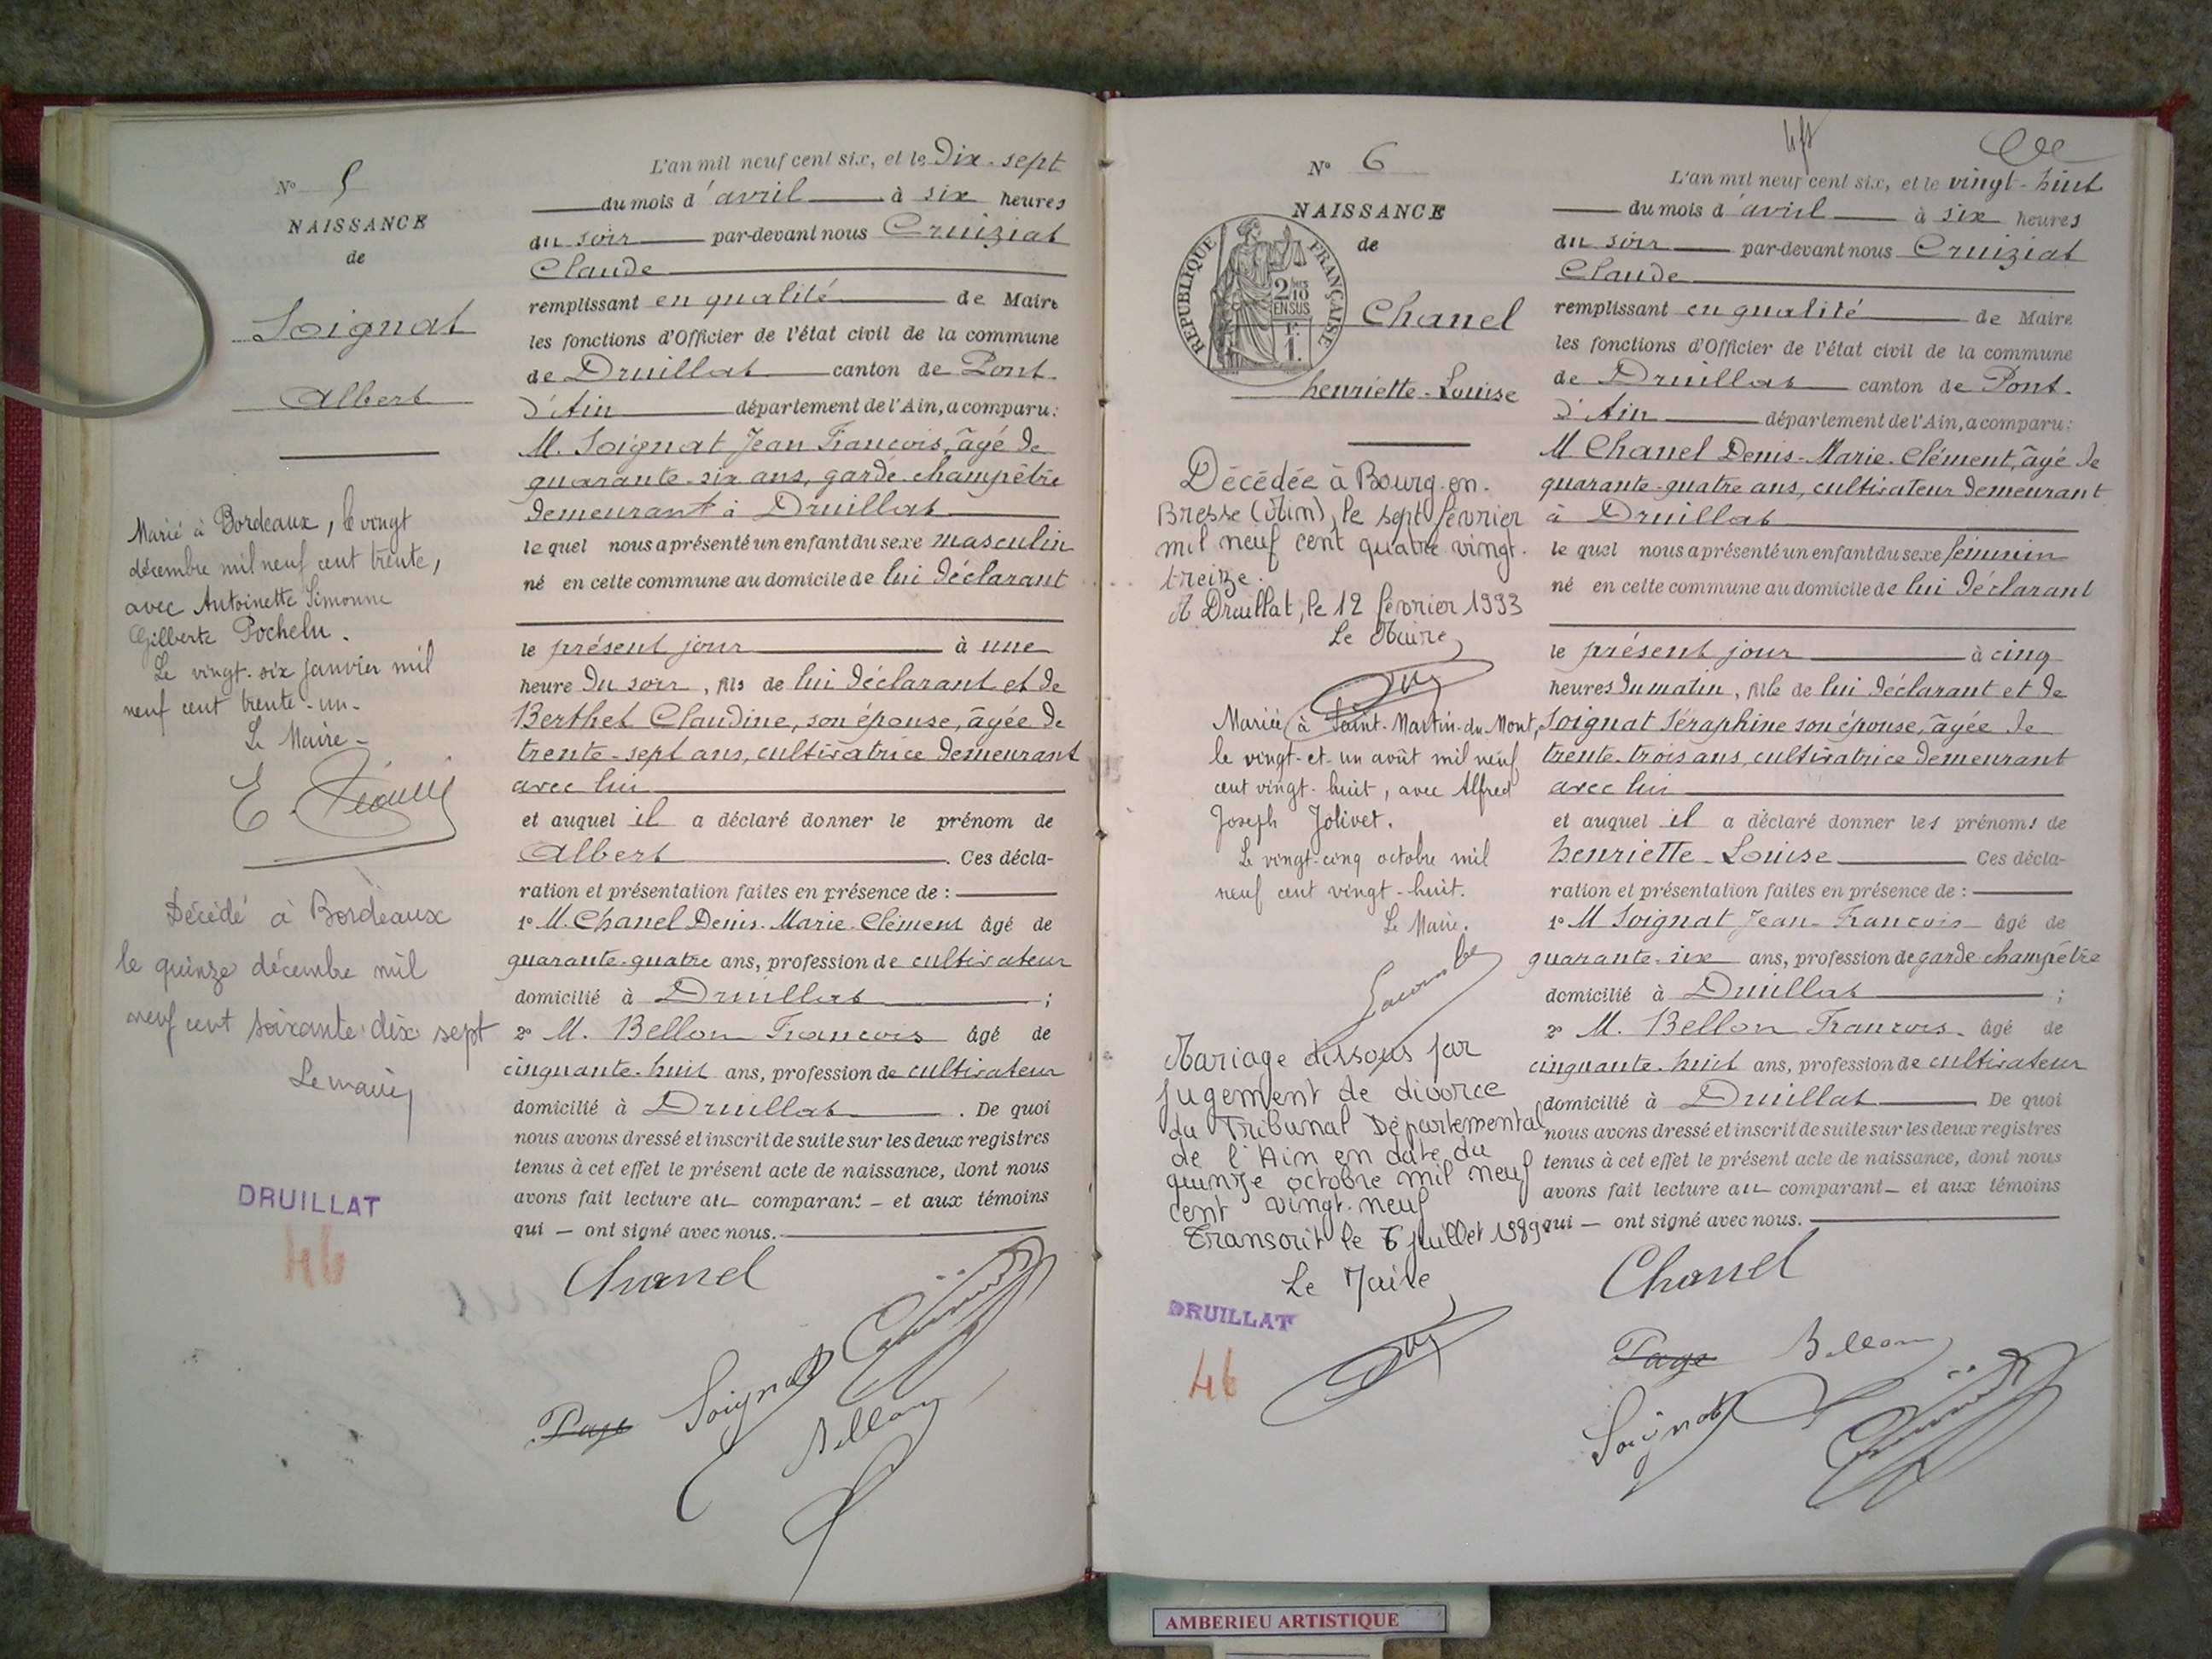 N° 5
NAISSANCE
de
Soignat
Albert
Marié à Bordeaux, le vingt
décembre mil neuf cent trente,
avec Antoinette Simonne
Gilberte Pochelu.
Le vingt-six janvier mil
neuf cent trente-un-
Le Maire-
Décédé à Bordeaux
le quinze décembre mil
neuf cent soixante dix sept
Le maire
DRUILLAT
46
L'an mil neuf cent six, et le Dix-sept
du mois d'avril à six heures
du soir par-devant nous Cruiziat
Claude
remplissant en qualité de Maire
les fonctions d'Officier de l'état civil de la commune
de Druillat canton de Pont-
d'Ain département de l'Ain, a comparu:
M. Soignat Jean François, âgé de
quarante-six ans, garde-champêtre
demeurant à Druillat
le quel nous a présenté un enfant du sexe masculin
né en cette commune au domicile de lui déclarant
le présent jour à une
heure du soir, fils de lui déclarant et de
Berthet Claudine, son épouse, âgée de
trente-sept ans, cultivatrice demeurant
avec lui
et auquel il a déclaré donner le prénom de
Albert. Ces décla-
ration et présentation faites en présence de :
1° M. Chanel Denis-Marie-Clément âgé de
quarante-quatre ans, profession de cultivateur
domicilié à Druillat ;
2° M. Bellon François âgé de
cinquante-huit ans, profession de cultivateur
domicilié à Druillat. De quoi
nous avons dressé et inscrit de suite sur les deux registres
tenus à cet effet le présent acte de naissance, dont nous
avons fait lecture au comparant – et aux témoins
qui – ont signé avec nous.
Chanel
Page Soignat
Bellon
N° 6
NAISSANCE
de
REPUBLIQUE FRANÇAISE
2/10
EN SUS
1F.
Chanel
henriette-Louise
Décédée à Bourg-en-
Bresse (Ain), le sept février
mil neuf cent quatre vingt-
treize.
A Druillat, le 12 février 1993
Le Maire,
Mariée à Saint-Martin-du-Mont,
le vingt-et-un août mil neuf
cent vingt-huit, avec Alfred
Joseph Jolivet.
Le vingt-cinq octobre mil
neuf cent vingt-huit.
Le Maire.
Mariage dissous par
jugement de divorce
du Tribunal Départemental
de l'Ain en date du
quinze octobre mil neuf
cent vingt-neuf
Transcrit le 6 juillet 1989
Le Maire
DRUILLAT
46
L'an mil neuf cent six, et le vingt-huit
du mois d'avril à six heures
du soir par-devant nous Cruiziat
Claude
remplissant en qualité de Maire
les fonctions d'Officier de l'état civil de la commune
de Druillat canton de Pont-
d'Ain département de l'Ain, a comparu:
M Chanel Denis-Marie-Clément, âgé de
quarante-quatre ans, cultivateur demeurant
à Druillat
le quel nous a présenté un enfant du sexe féminin
né en cette commune au domicile de lui déclarant
le présent jour à cinq
heures du matin, fille de lui déclarant et de
Soignat Séraphine son épouse, âgée de
trente-trois ans, cultivatrice demeurant
avec lui
et auquel il a déclaré donner les prénoms de
henriette-Louise Ces décla-
ration et présentation faites en présence de :
1° M Soignat Jean-François âgé de
quarante-six ans, profession de garde champêtre
domicilié à Druillat ;
2° M. Bellon François. âgé de
cinquante-huit ans, profession de cultivateur
domicilié à Druillat De quoi
nous avons dressé et inscrit de suite sur les deux registres
tenus à cet effet le présent acte de naissance, dont nous
avons fait lecture au comparant – et aux témoins
qui – ont signé avec nous.
Chanel
Page Bellon
Soignat
AMBERIEU ARTISTIQUE